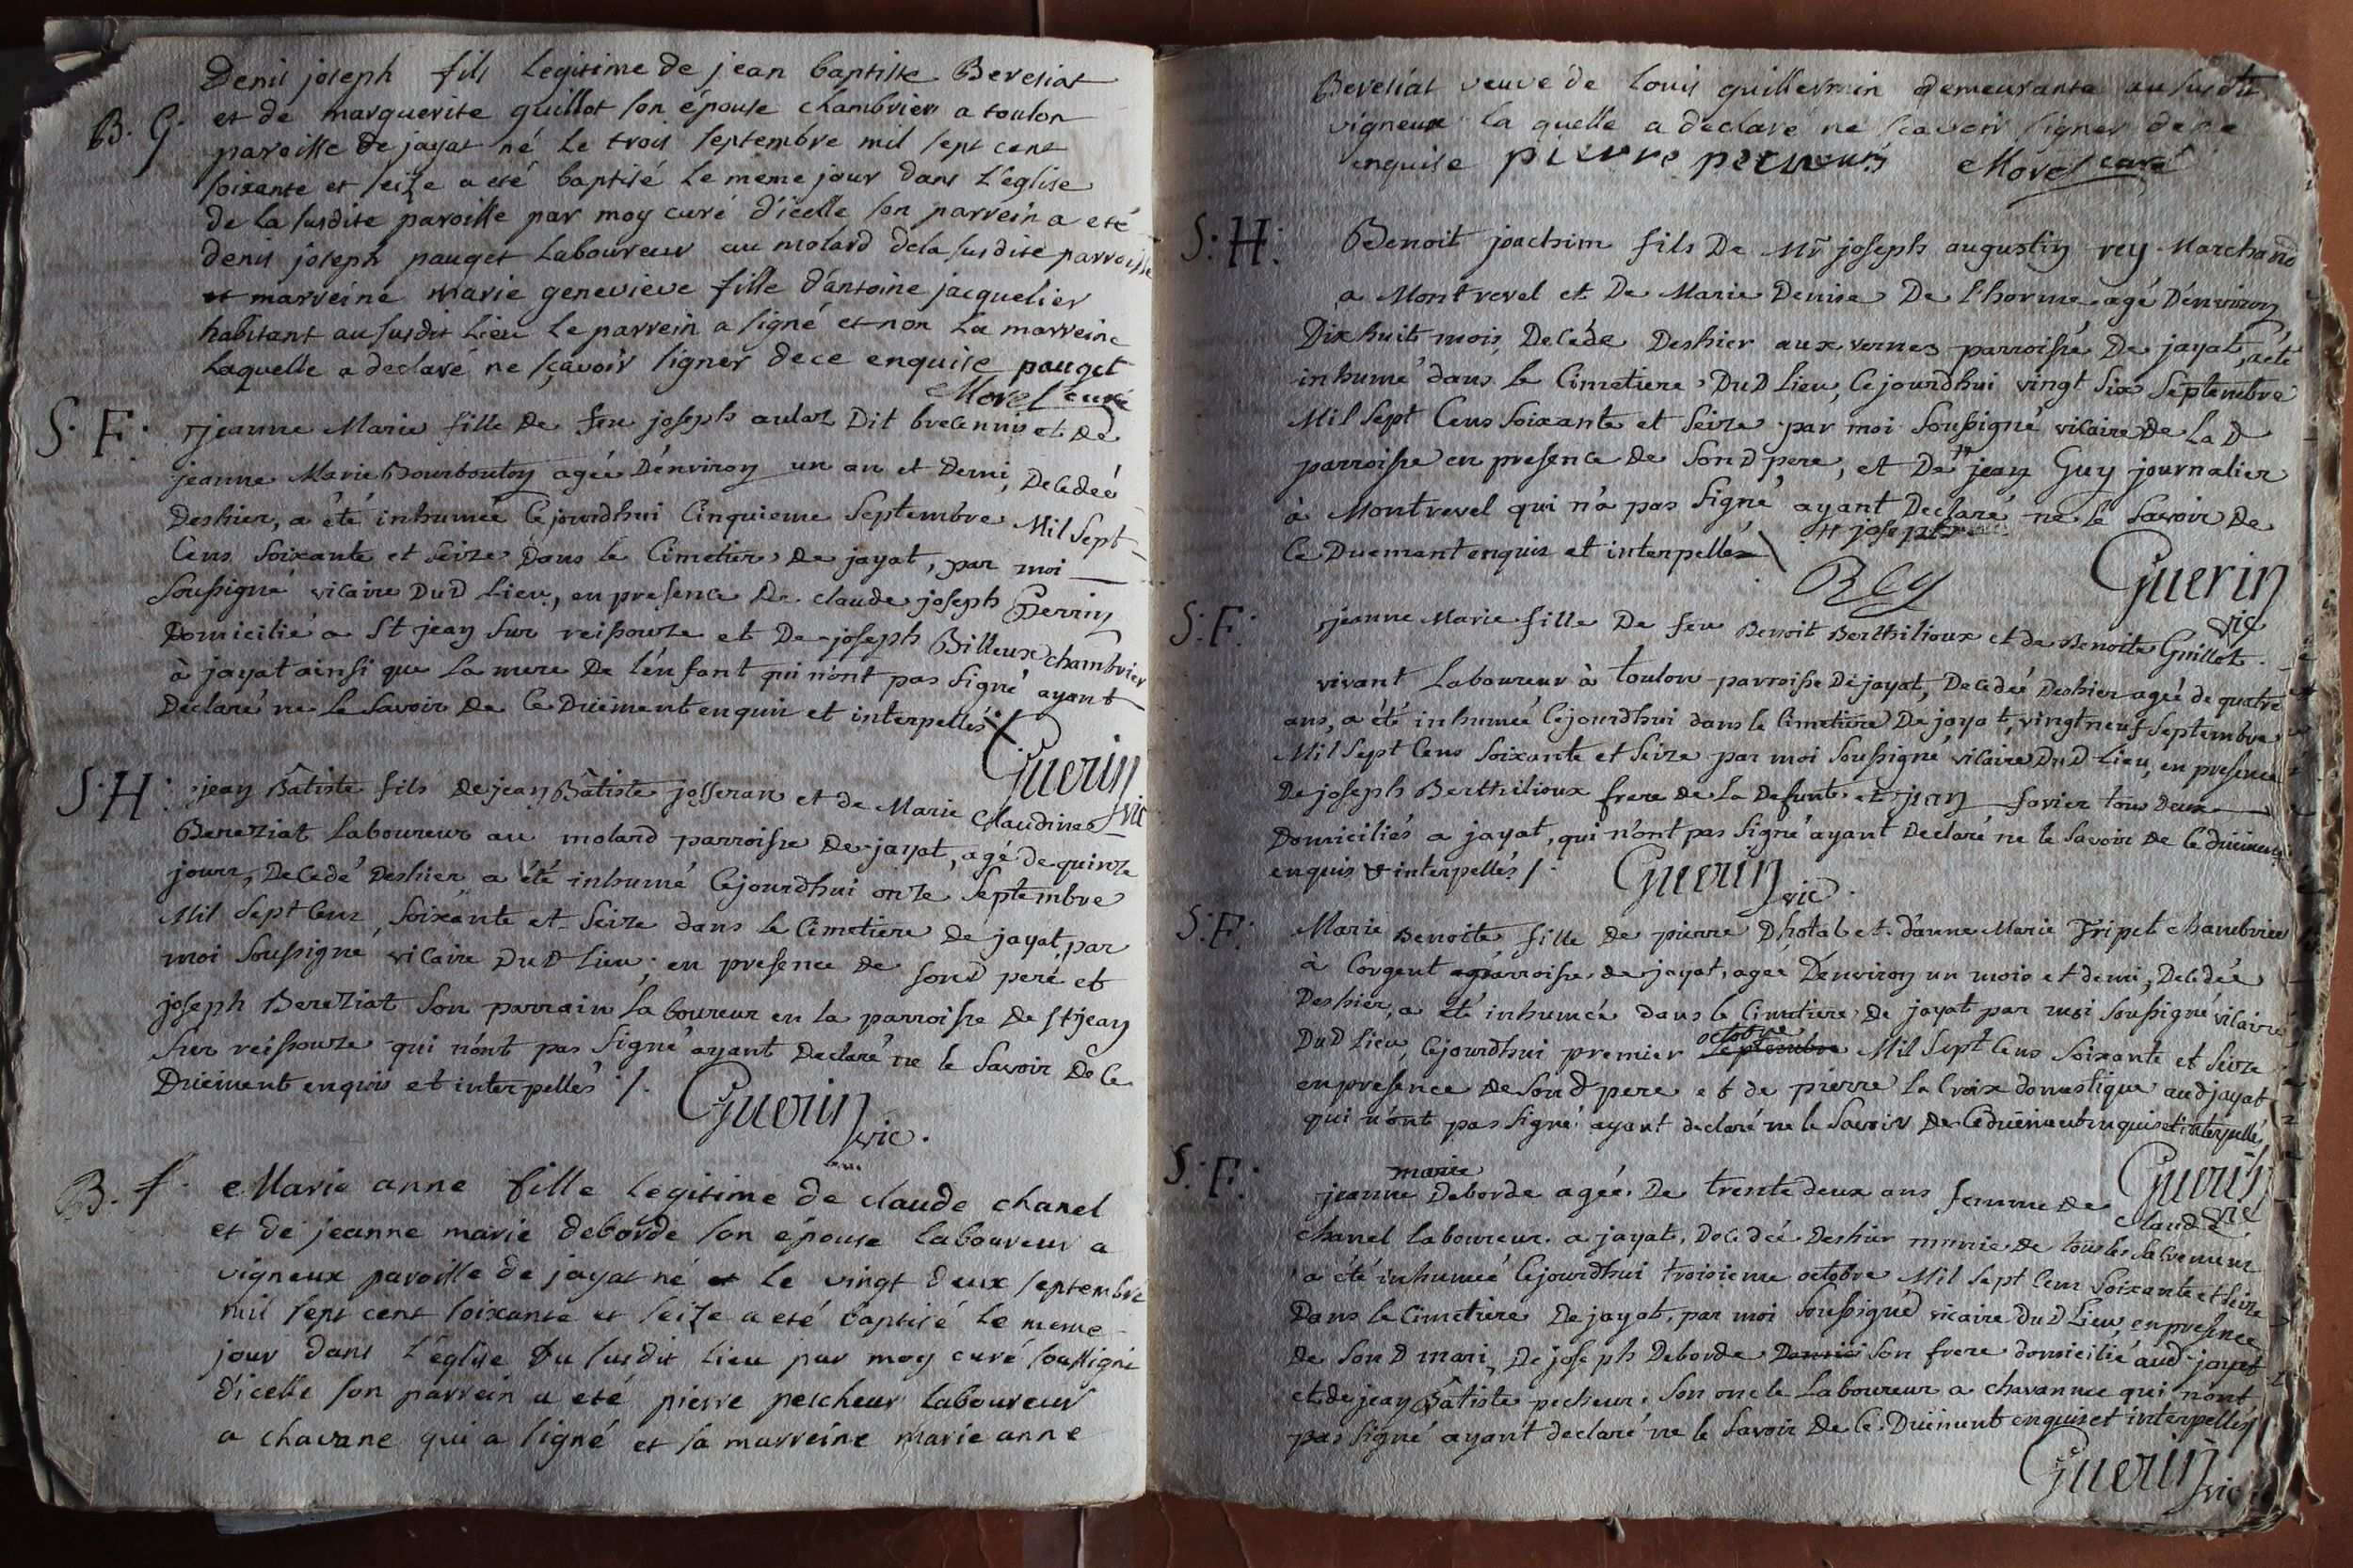 Denis joseph fils legitime de jean baptiste Beresiat
B. G. et de marguerite guillot son épouse chambrier a toulon
paroisse de jayat né le trois septembre mil sept cent
soixante et seize a eté baptisé le même jour dans l'eglise
de la susdite paroisse par moy curé d'icelle son parrein a eté
denis joseph pauget laboureur au molard dela susdite parroisse
et marreine marie genevieve fille d'antoine jacquelier
habitant au susdit lieu le parrein a signé et non la marreine
laquelle a declaré ne sçavoir signer de ce enquise pauget
Morel curé
S. F. jeanne Marie fille De feu joseph aulaz Dit bressennis et De
jeanne Marie Bourbouton agée D'environ un an et Demi, Decedeé
Deshier, a été inhumeé Cejourdhui Cinquieme Septembre Mil Sept
Cens Soixante et Seize Dans le Cimetiere De jayat, par moi
Soussigné vicaire DuD Lieu, en presence De claude joseph Perrin
Domicilié a St jean Sur reissouze et De joseph Billeux chambrier
à jayat ainsi que la mere De l'enfant qui n'ont pas Signé ayant
Declaré ne le Savoir De Ce Duëment enquis et interpellés
Guerin vic
S. H. jean Bâtiste fils De jean Bâtiste josseran et de Marie Claudine
Bereziat Laboureur au molard parroisse De jayat, agé de quinze
jours, Decedé Deshier a été inhumé Cejourdhui onze Septembre
Mil Sept Cens Soixante et Seize dans le Cimetiere De jayat, par
moi Soussigné vicaire DuD Lieu, en presence De SonD pere et
joseph Bereziat Son parrain Laboureur en la parroisse De St jean
Sur reissouze qui n'ont pas Signé ayant Declaré ne le Savoir De Ce
Duëment enquis et interpellés /.
Guerin vic.
B. f. Marie anne fille legitime de claude chanel
et de jeanne marie deborde son épouse laboureur a
vigneux paroisse de jayat né et le vingt deux septembre
mil sept cent soixante et seize a eté baptisé le meme
jour dans l'église du susdit lieu par moy curé soussigné
d'icelle son parrein a eté pierre pescheur laboureur
a chavane qui a signé et sa marreine marie anne
Beresiat veuve de louis guillermin demeurante au susdit
vigneux la quelle a declaré ne sçavoir signer de ce
enquise pierre pecheurs Morel curé
S. H. Benoit joachim fils De Mr joseph augustin rey Marchand
a Montrevel et De Marie Denise De l'horme agé D'environ
Dix huit mois, Decéde Deshier aux vernes parroisse De jayat, a été
inhumé dans le Cimetiere DuD Lieu, Cejourdhui vingt Six Septembre
Mil Sept Cens Soixante et Seize par moi Soussigné vicaire De La D
parroisse en presence De SonD pere, et De # jean Guy journalier
à Montrevel qui n'a pas Signé ayant Declaré ne le Savoir De
# joseph
Ce Duement enquis et interpellés
Rey Guerin vic
S. F. jeanne Marie fille De feu Benoit Berthilioux et de Benoite Guillot
vivant Laboureur à toulon parroisse De jayat, Decedeé Deshier agée de quatre
ans, a été inhumeé Cejourdhui dans le Cimetiere De jayat, vingt neuf Septembre
Mil Sept Cens Soixante et Seize par moi Soussigné vicaire DuD Lieu, en presence
De joseph Berthilioux frere de La Defunte et jean favier tous Deux
Domiciliés a jayat, qui n'ont pas Signé ayant Declaré ne le Savoir De Ce duëment
enquis & interpellés /. Guerin vic.
S. F. Marie Benoite fille De pierre Dhotal et d'anne Marie Fripet chambrier
à Corgent parroisse de jayat, ageé D'environ un mois et demi, Decedée
Deshier, a été inhumée dans le Cimetiere De jayat par moi Soussigné vicaire
octobre
DuD Lieu, Cejourdhui premier Septembre Mil Sept Cens Soixante et Seize
en presence De SonD pere et de pierre la Croix domestique aud jayat
qui n'ont pas Signé ayant declaré ne le Savoir De Ce duëment enquis et interpellés
Guerin vic
marie
S. F. jeanne Deborde ageé De trente deux ans femme De Claude
chanel Laboureur a jayat, Decedeé Deshier munie De tous les Sacremens
a été inhumeé Cejourdhui troisieme octobre Mil Sept Cens Soixante et Seize
Dans le Cimetiere De jayat, par moi Soussigné vicaire DuD Lieu, en presence
De SonD mari, De joseph Deborde Domici Son frere domicilié aud jayat
et de jean Bâtiste pecheur Son oncle Laboureur a chavannes qui n'ont
pas Signé ayant declaré ne le Savoir De Ce Duëment enquis et interpellés
Guerin vic